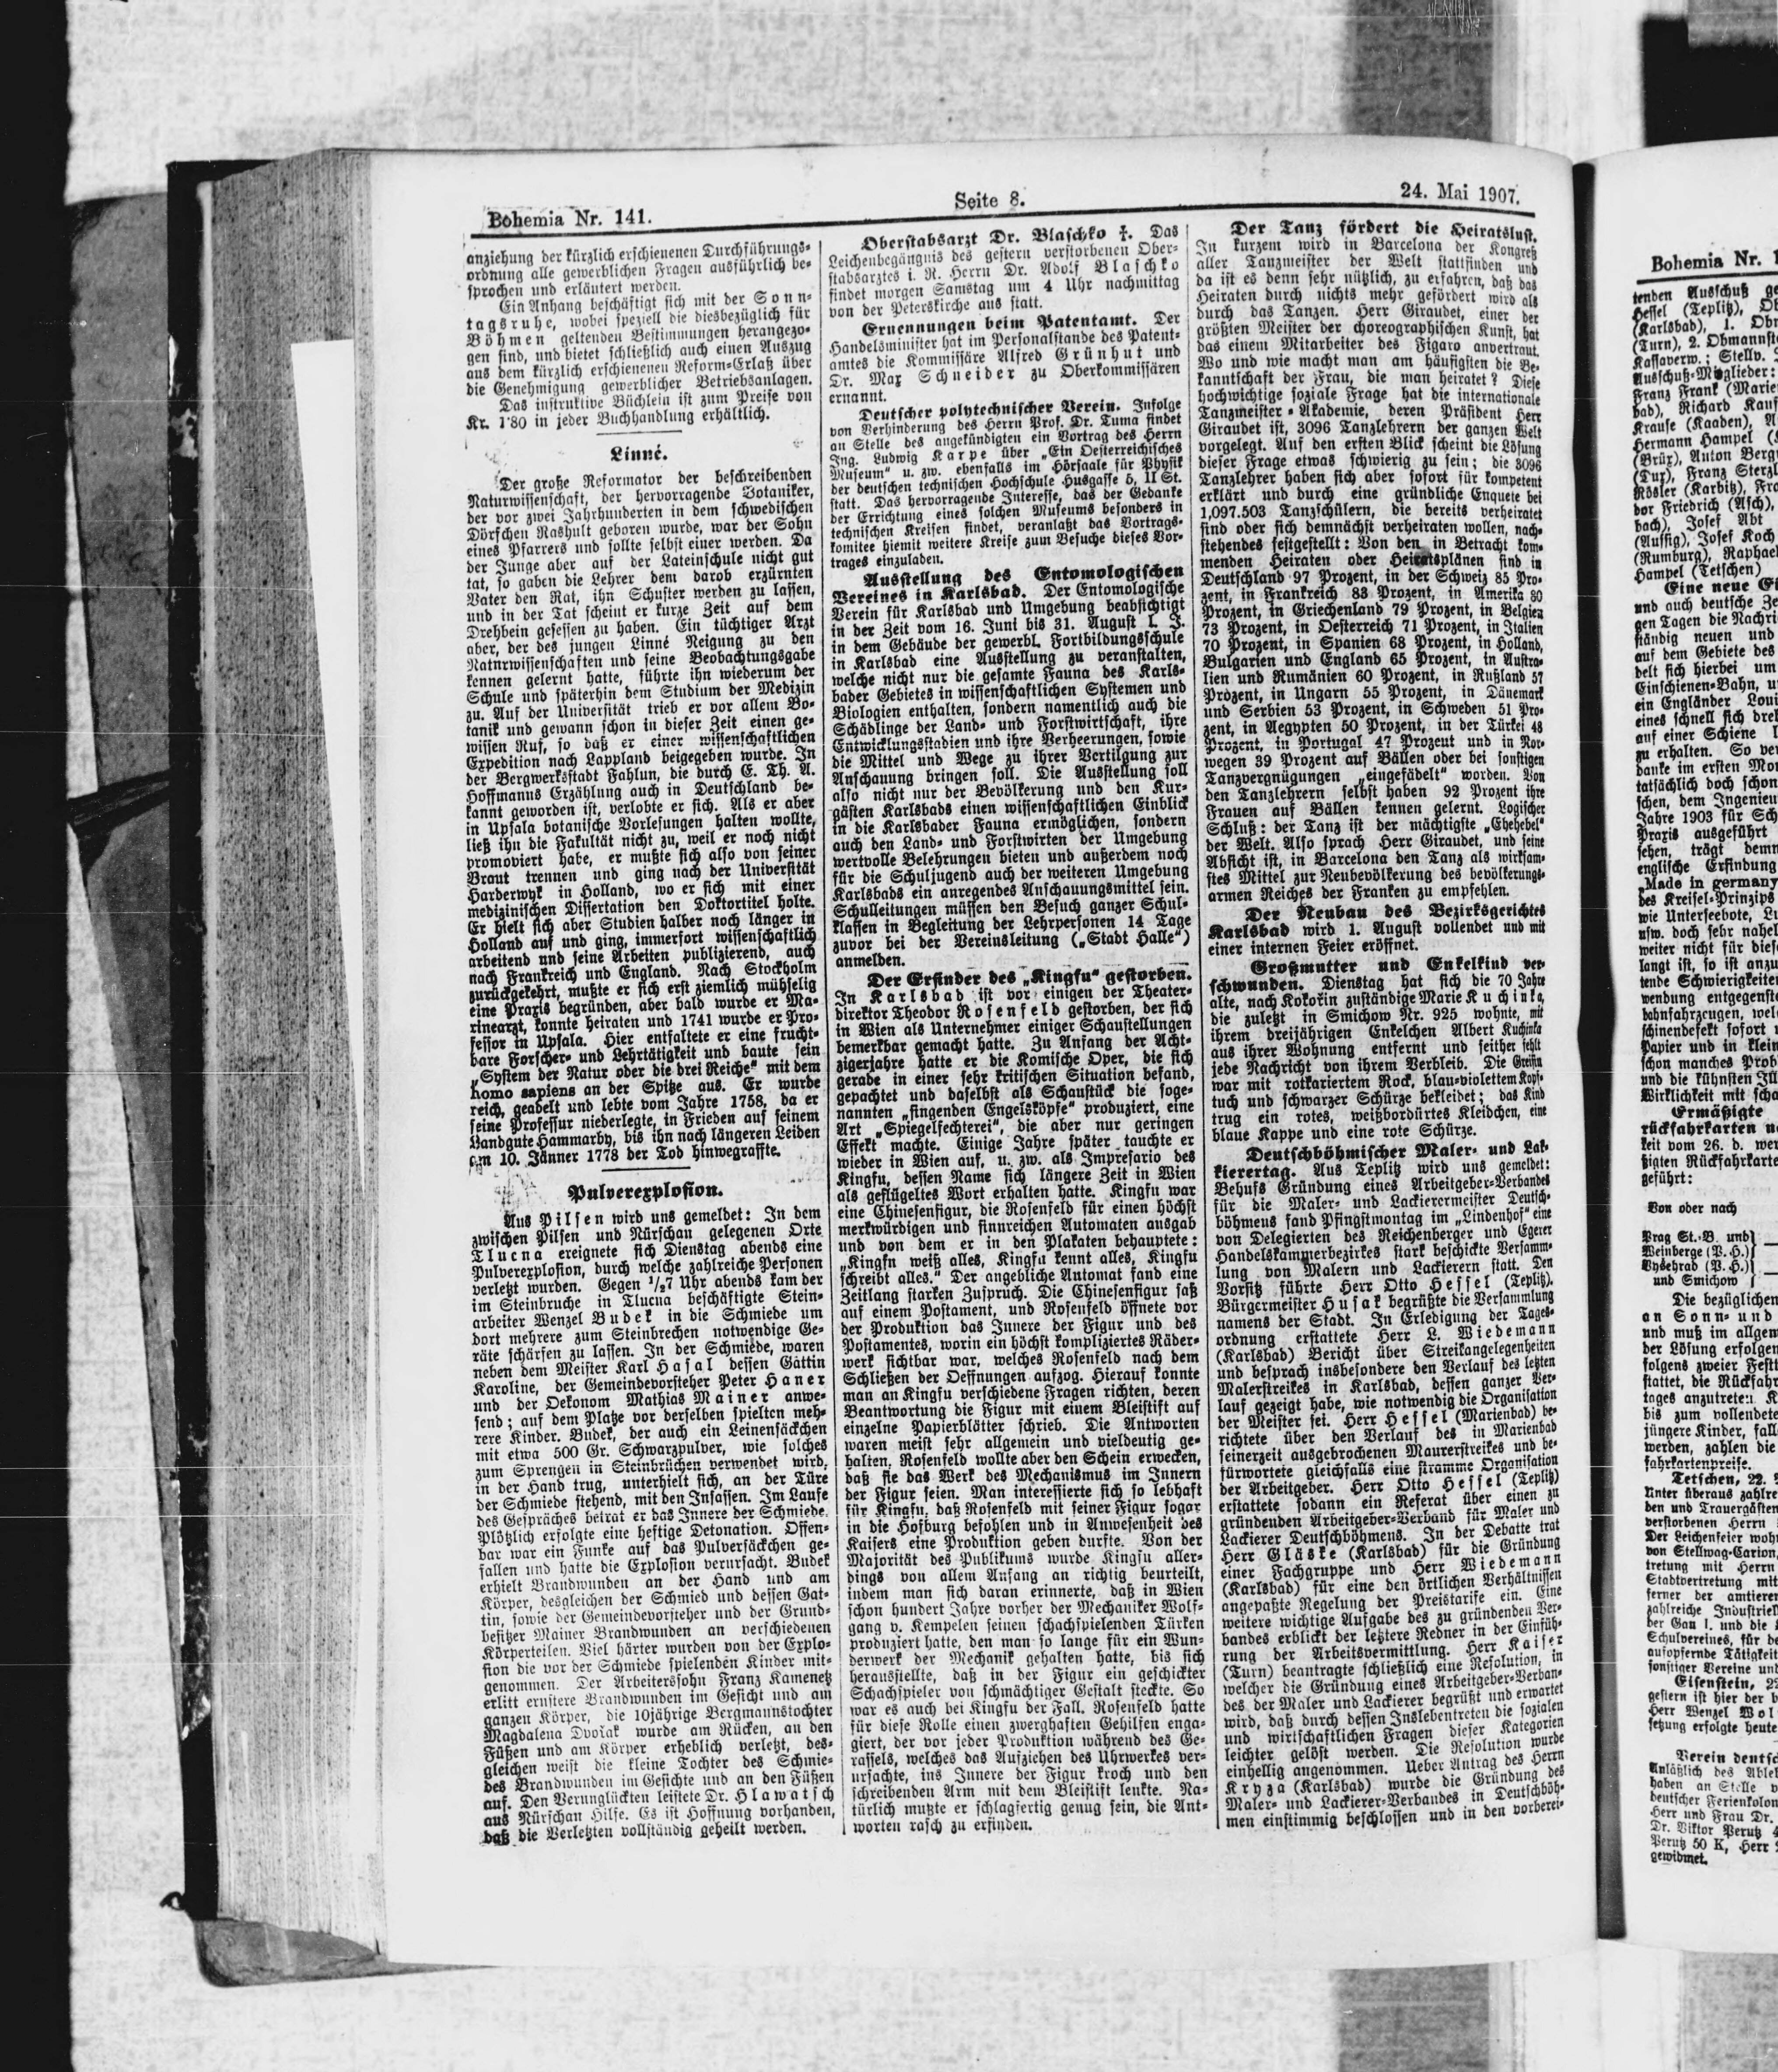 Bohemia Nr. 141.
Seite 8.
24. Mai 1907.
anziehung der kürzlich erschienenen Durchführungs-
ordnung alle gewerblichen Fragen ausführlich be-
sprochen und erläutert werden.
Ein Anhang beschäftigt sich mit der Sonn-
tagsruhe, wobei speziell die diesbezüglich für
Böhmen geltenden Bestimmungen herangezo-
gen sind, und bietet schließlich auch einen Auszug
aus dem kürzlich erschienenen Reform-Erlaß über
die Genehmigung gewerblicher Betriebsanlagen.
Das instruktive Büchlein ist zum Preise von
Kr. 1·80 in jeder Buchhandlung erhältlich.
Linné.
Der große Reformator der beschreibenden
Naturwissenschaft, der hervorragende Botaniker,
der vor zwei Jahrhunderten in dem schwedischen
Dörfchen Rashult geboren wurde, war der Sohn
eines Pfarrers und sollte selbst einer werden. Da
der Junge aber auf der Lateinschule nicht gut
tat, so gaben die Lehrer dem darob erzürnten
Vater den Rat, ihn Schuster werden zu lassen,
und in der Tat scheint er kurze Zeit auf dem
Drehbein gesessen zu haben. Ein tüchtiger Arzt
aber, der des jungen Linné Neigung zu den
Naturwissenschaften und seine Beobachtungsgabe
kennen gelernt hatte, führte ihn wiederum der
Schule und späterhin dem Studium der Medizin
zu. Auf der Universität trieb er vor allem Bo-
tanik und gewann schon in dieser Zeit einen ge-
wissen Ruf, so daß er einer wissenschaftlichen
Expedition nach Lappland beigegeben wurde. In
der Bergwerksstadt Fahlun, die durch E. Th. A.
Hoffmanns Erzählung auch in Deutschland be-
kannt geworden ist, verlobte er sich. Als er aber
in Upsala botanische Vorlesungen halten wollte,
ließ ihn die Fakultät nicht zu, weil er noch nicht
promoviert habe, er mußte sich also von seiner
Braut trennen und ging nach der Universität
Harderwyk in Holland, wo er sich mit einer
medizinischen Dissertation den Doktortitel holte.
Er hielt sich aber Studien halber noch länger in
Holland auf und ging, immerfort wissenschaftlich
arbeitend und seine Arbeiten publizierend, auch
nach Frankreich und England. Nach Stockholm
zurückgekehrt, mußte er sich erst ziemlich mühselig
eine Praxis begründen, aber bald wurde er Ma-
rinearzt, konnte heiraten und 1741 wurde er Pro-
fessor in Upsala. Hier entfaltete er eine frucht-
bare Forscher- und Lehrtätigkeit und baute sein
„System der Natur oder die drei Reiche“ mit dem
homo sapiens an der Spitze aus. Er wurde
reich, geadelt und lebte vom Jahre 1758, da er
seine Professur niederlegte, in Frieden auf seinem
Landgute Hammarby, bis ihn nach längeren Leiden
am 10. Jänner 1778 der Tod hinwegraffte.
Pulverexplosion.
Aus Pilsen wird uns gemeldet: In dem
zwischen Pilsen und Nürschan gelegenen Orte
Tlucna ereignete sich Dienstag abends eine
Pulverexplosion, durch welche zahlreiche Personen
verletzt wurden. Gegen 1/27 Uhr abends kam der
im Steinbruche in Tlucna beschäftigte Stein-
arbeiter Wenzel Budek in die Schmiede um
dort mehrere zum Steinbrechen notwendige Ge-
räte schärfen zu lassen. In der Schmiede, waren
neben dem Meister Karl Hasal dessen Gattin
Karoline, der Gemeindevorsteher Peter Haner
und der Oekonom Mathias Mainer anwe-
send; auf dem Platze vor derselben spielten meh-
rere Kinder. Budek, der auch ein Leinensäckchen
mit etwa 500 Gr. Schwarzpulver, wie solches
zum Sprengen in Steinbrüchen verwendet wird,
in der Hand trug, unterhielt sich, an der Türe
der Schmiede stehend, mit den Insassen. Im Laufe
des Gespräches betrat er das Innere der Schmiede.
Plötzlich erfolgte eine heftige Detonation. Offen-
bar war ein Funke auf das Pulversäckchen ge-
fallen und hatte die Explosion verursacht. Budek
erhielt Brandwunden an der Hand und am
Körper, desgleichen der Schmied und dessen Gat-
tin, sowie der Gemeindevorsteher und der Grund-
besitzer Mainer Brandwunden an verschiedenen
Körperteilen. Viel härter wurden von der Explo-
sion die vor der Schmiede spielenden Kinder mit-
genommen. Der Arbeiterssohn Franz Kamenetz
erlitt ernstere Brandwunden im Gesicht und am
ganzen Körper, die 10jährige Bergmannstochter
Magdalena Dvořak wurde am Rücken, an den
Füßen und am Körper erheblich verletzt, des-
gleichen weist die kleine Tochter des Schmie-
des Brandwunden im Gesichte und an den Füßen
auf. Den Verunglückten leistete Dr. Hlawatsch
aus Nürschan Hilfe. Es ist Hoffnung vorhanden,
daß die Verletzten vollständig geheilt werden.
Oberstabsarzt Dr. Blaschko †. Das
Leichenbegängnis des gestern verstorbenen Ober-
stabsarztes i. R. Herrn Dr. Adolf Blaschko
findet morgen Samstag um 4 Uhr nachmittag
von der Peterskirche aus statt.
Ernennungen beim Patentamt. Der
Handelsminister hat im Personalstande des Patent-
amtes die Kommissäre Alfred Grünhut und
Dr. Max Schneider zu Oberkommissären
ernannt.
Deutscher polytechnischer Verein. Infolge
von Verhinderung des Herrn Prof. Dr. Tuma findet
an Stelle des angekündigten ein Vortrag des Herrn
Ing. Ludwig Karpe über „Ein Oesterreichisches
Museum“ u. zw. ebenfalls im Hörsaale für Physik
der deutschen technischen Hochschule Husgasse 5, II St.
statt. Das hervorragende Interesse, das der Gedanke
der Errichtung eines solchen Museums besonders in
technischen Kreisen findet, veranlaßt das Vortrags-
komitee hiemit weitere Kreise zum Besuche dieses Vor-
trages einzuladen.
Ausstellung des Entomologischen
Vereines in Karlsbad. Der Entomologische
Verein für Karlsbad und Umgebung beabsichtigt
in der Zeit vom 16. Juni bis 31. August l. J.
in dem Gebäude der gewerbl. Fortbildungsschule
in Karlsbad eine Ausstellung zu veranstalten,
welche nicht nur die gesamte Fauna des Karls-
bader Gebietes in wissenschaftlichen Systemen und
Biologien enthalten, sondern namentlich auch die
Schädlinge der Land- und Forstwirtschaft, ihre
Entwicklungsstadien und ihre Verheerungen, sowie
die Mittel und Wege zu ihrer Vertilgung zur
Anschauung bringen soll. Die Ausstellung soll
also nicht nur der Bevölkerung und den Kur-
gästen Karlsbads einen wissenschaftlichen Einblick
in die Karlsbader Fauna ermöglichen, sondern
auch den Land- und Forstwirten der Umgebung
wertvolle Belehrungen bieten und außerdem noch
für die Schuljugend auch der weiteren Umgebung
Karlsbads ein anregendes Anschauungsmittel sein.
Schulleitungen müssen den Besuch ganzer Schul-
klassen in Begleitung der Lehrpersonen 14 Tage
zuvor bei der Vereinsleitung („Stadt Halle“)
anmelden.
Der Erfinder des „Kingfu“ gestorben.
In Karlsbad ist vor einigen der Theater-
direktor Theodor Rosenfeld gestorben, der sich
in Wien als Unternehmer einiger Schaustellungen
bemerkbar gemacht hatte. Zu Anfang der Acht-
zigerjahre hatte er die Komische Oper, die sich
gerade in einer sehr kritischen Situation befand,
gepachtet und daselbst als Schaustück die soge-
nannten „singenden Engelsköpfe“ produziert, eine
Art „Spiegelfechterei“, die aber nur geringen
Effekt machte. Einige Jahre später tauchte er
wieder in Wien auf, u. zw. als Impresario des
Kingfu, dessen Name sich längere Zeit in Wien
als geflügeltes Wort erhalten hatte. Kingfu war
eine Chinesenfigur, die Rosenfeld für einen höchst
merkwürdigen und sinnreichen Automaten ausgab
und von dem er in den Plakaten behauptete:
„Kingfu weiß alles, Kingfu kennt alles, Kingfu
schreibt alles.“ Der angebliche Automat fand eine
Zeitlang starken Zuspruch. Die Chinesenfigur saß
auf einem Postament, und Rosenfeld öffnete vor
der Produktion das Innere der Figur und des
Postamentes, worin ein höchst kompliziertes Räder-
werk sichtbar war, welches Rosenfeld nach dem
Schließen der Oeffnungen aufzog. Hierauf konnte
man an Kingfu verschiedene Fragen richten, deren
Beantwortung die Figur mit einem Bleistift auf
einzelne Papierblätter schrieb. Die Antworten
waren meist sehr allgemein und vieldeutig ge-
halten. Rosenfeld wollte aber den Schein erwecken,
daß sie das Werk des Mechanismus im Innern
der Figur seien. Man interessierte sich so lebhaft
für Kingfu, daß Rosenfeld mit seiner Figur sogar
in die Hofburg befohlen und in Anwesenheit des
Kaisers eine Produktion geben durfte. Von der
Majorität des Publikums wurde Kingfu aller-
dings von allem Anfang an richtig beurteilt,
indem man sich daran erinnerte, daß in Wien
schon hundert Jahre vorher der Mechaniker Wolf-
gang v. Kempelen seinen schachspielenden Türken
produziert hatte, den man so lange für ein Wun-
derwerk der Mechanik gehalten hatte, bis sich
herausstellte, daß in der Figur ein geschickter
Schachspieler von schmächtiger Gestalt steckte. So
war es auch bei Kingfu der Fall. Rosenfeld hatte
für diese Rolle einen zwerghaften Gehilfen enga-
giert, der vor jeder Produktion während des Ge-
rassels, welches das Aufziehen des Uhrwerkes ver-
ursachte, ins Innere der Figur kroch und den
schreibenden Arm mit dem Bleistift lenkte. Na-
türlich mußte er schlagfertig genug sein, die Ant-
worten rasch zu erfinden.
Der Tanz fördert die Heiratslust.
In kurzem wird in Barcelona der Kongreß
aller Tanzmeister der Welt stattfinden und
da ist es denn sehr nützlich, zu erfahren, daß das
Heiraten durch nichts mehr gefördert wird als
durch das Tanzen. Herr Giraudet, einer der
größten Meister der choreographischen Kunst, hat
das einem Mitarbeiter des Figaro anvertraut.
Wo und wie macht man am häufigsten die Be-
kanntschaft der Frau, die man heiratet? Diese
hochwichtige soziale Frage hat die internationale
Tanzmeister-Akademie, deren Präsident Herr
Giraudet ist, 3096 Tanzlehrern der ganzen Welt
vorgelegt. Auf den ersten Blick scheint die Lösung
dieser Frage etwas schwierig zu sein; die 3096
Tanzlehrer haben sich aber sofort für kompetent
erklärt und durch eine gründliche Enquete bei
1,097.503 Tanzschülern, die bereits verheiratet
sind oder sich demnächst verheiraten wollen, nach-
stehendes festgestellt: Von den in Betracht kom-
menden Heiraten oder Heiratsplänen sind in
Deutschland 97 Prozent, in der Schweiz 85 Pro-
zent, in Frankreich 83 Prozent, in Amerika 80
Prozent, in Griechenland 79 Prozent, in Belgien
73 Prozent, in Oesterreich 71 Prozent, in Italien
70 Prozent, in Spanien 68 Prozent, in Holland,
Bulgarien und England 65 Prozent, in Austra-
lien und Rumänien 60 Prozent, in Rußland 57
Prozent, in Ungarn 55 Prozent, in Dänemark
und Serbien 53 Prozent, in Schweden 51 Pro-
zent, in Aegypten 50 Prozent, in der Türkei 48
Prozent, in Portugal 47 Prozent und in Nor-
wegen 39 Prozent auf Bällen oder bei sonstigen
Tanzvergnügungen „eingefädelt“ worden. Von
den Tanzlehrern selbst haben 92 Prozent ihre
Frauen auf Bällen kennen gelernt. Logischer
Schluß: der Tanz ist der mächtigste „Ehehebel“
der Welt. Also sprach Herr Giraudet, und seine
Absicht ist, in Barcelona den Tanz als wirksam-
stes Mittel zur Neubevölkerung des bevölkerungs-
armen Reiches der Franken zu empfehlen.
Der Neubau des Bezirksgerichtes
Karlsbad wird 1. August vollendet und mit
einer internen Feier eröffnet.
Großmutter und Enkelkind ver-
schwunden. Dienstag hat sich die 70 Jahre
alte, nach Kokořin zuständige Marie Kuchinka,
die zuletzt in Smichow Nr. 925 wohnte, mit
ihrem dreijährigen Enkelchen Albert Kuchinka
aus ihrer Wohnung entfernt und seither fehlt
jede Nachricht von ihrem Verbleib. Die Greisin
war mit rotkariertem Rock, blau-violettem Kopf-
tuch und schwarzer Schürze bekleidet; das Kind
trug ein rotes, weißbordürtes Kleidchen, eine
blaue Kappe und eine rote Schürze.
Deutschböhmischer Maler- und Lak-
kierertag. Aus Teplitz wird uns gemeldet:
Behufs Gründung eines Arbeitgeber-Verbandes
für die Maler- und Lackierermeister Deutsch-
böhmens fand Pfingstmontag im „Lindenhof“ eine
von Delegierten des Reichenberger und Egerer
Handelskammerbezirkes stark beschickte Versamm-
lung von Malern und Lackierern statt. Den
Vorsitz führte Herr Otto Hessel (Teplitz).
Bürgermeister Husak begrüßte die Versammlung
namens der Stadt. In Erledigung der Tages-
ordnung erstattete Herr L. Wiedemann
(Karlsbad) Bericht über Streikangelegenheiten
und besprach insbesondere den Verlauf des letzten
Malerstreikes in Karlsbad, dessen ganzer Ver-
lauf gezeigt habe, wie notwendig die Organisation
der Meister sei. Herr Hessel (Marienbad) be-
richtete über den Verlauf des in Marienbad
seinerzeit ausgebrochenen Maurerstreikes und be-
fürwortete gleichfalls eine stramme Organisation
der Arbeitgeber. Herr Otto Hessel (Teplitz)
erstattete sodann ein Referat über einen zu
gründenden Arbeitgeber-Verband für Maler und
Lackierer Deutschböhmens. In der Debatte trat
Herr Gläske (Karlsbad) für die Gründung
einer Fachgruppe und Herr Wiedemann
(Karlsbad) für eine den örtlichen Verhältnissen
angepaßte Regelung der Preistarife ein. Eine
weitere wichtige Aufgabe des zu gründenden Ver-
bandes erblickt der letztere Redner in der Einfüh-
rung der Arbeitsvermittlung. Herr Kaiser
(Turn) beantragte schließlich eine Resolution, in
welcher die Gründung eines Arbeitgeber-Verban-
des der Maler und Lackierer begrüßt und erwartet
wird, daß durch dessen Inslebentreten die sozialen
und wirtschaftlichen Fragen dieser Kategorien
leichter gelöst werden. Die Resolution wurde
einhellig angenommen. Ueber Antrag des Herrn
Kryza (Karlsbad) wurde die Gründung des
Maler- und Lackierer-Verbandes in Deutschböh-
men einstimmig beschlossen und in den vorberei-
Bohemia Nr. 1
tenden Ausschuß ge
Hessel (Teplitz), Ob
(Karlsbad), 1. Obm
(Turn), 2. Obmannst
Kassaverw.; Stellv.
Ausschuß-Mitglieder:
Franz Frank (Marie
bad), Richard Kauf
Krause (Kaaden), A
Hermann Hampel (
(Brüx), Anton Berg
(Dux), Franz Sterzl
Rösler (Karbitz), Fra
dor Friedrich (Asch),
bach), Josef Abt
(Aussig), Josef Koch
(Rumburg), Raphael
Hampel (Tetschen)
Eine neue Ei
und auch deutsche Ze
gen Tagen die Nachri
ständig neuen und
auf dem Gebiete des
delt sich hierbei um
Einschienen-Bahn, u
ein Engländer Loui
eines schnell sich dreh
auf einer Schiene l
zu erhalten. So ver
danke im ersten Mom
tatsächlich doch schon
schen, dem Ingenieu
Jahre 1903 für Sch
Praxis ausgeführt
sehen, trägt demn
englische Erfindung
„Made in germany
des Kreisel-Prinzips
wie Unterseebote, Lu
usw. doch sehr nahel
weiter nicht für dies
langt ist, so ist anzu
tende Schwierigkeiten
wendung entgegenste
bahnfahrzeugen, wel
schinendefekt sofort
Papier und in klein
schon manches Prob
und die kühnsten Ill
Wirklichkeit mit scha
Ermäßigte
rückfahrkarten n
keit vom 26. d. wer
ßigten Rückfahrkarte
geführt:
Von oder nach
Prag St.-B. und
Weinberge (P. H.)
Vyšehrad (P. H.)
und Smichow
Die bezüglichen
an Sonn- und
und muß im allgem
der Lösung erfolgen
folgens zweier Festt
stattet, die Rückfahr
tages anzutreten. K
bis zum vollendete
jüngere Kinder, fall
werden, zahlen die
fahrkartenpreise.
Tetschen, 22.
Unter überaus zahlre
den und Trauergästen
verstorbenen Herrn
Der Leichenfeier wohn
von Stellwag-Carion,
tretung mit Herrn
Stadtvertretung mit
ferner der amtieren
zahlreiche Industriell
der Gau I. und die
Schulvereines, für de
aufopfernde Tätigkeit
sonstiger Vereine und
Eisenstein, 22
gestern ist hier der b
Herr Wenzel Wol
setzung erfolgte heute
Verein deutsc
Anläßlich des Able
haben an Stelle v
deutscher Ferienkolon
Herr und Frau Dr.
Dr. Viktor Perutz 4
Perutz 50 K, Herr
gewidmet.